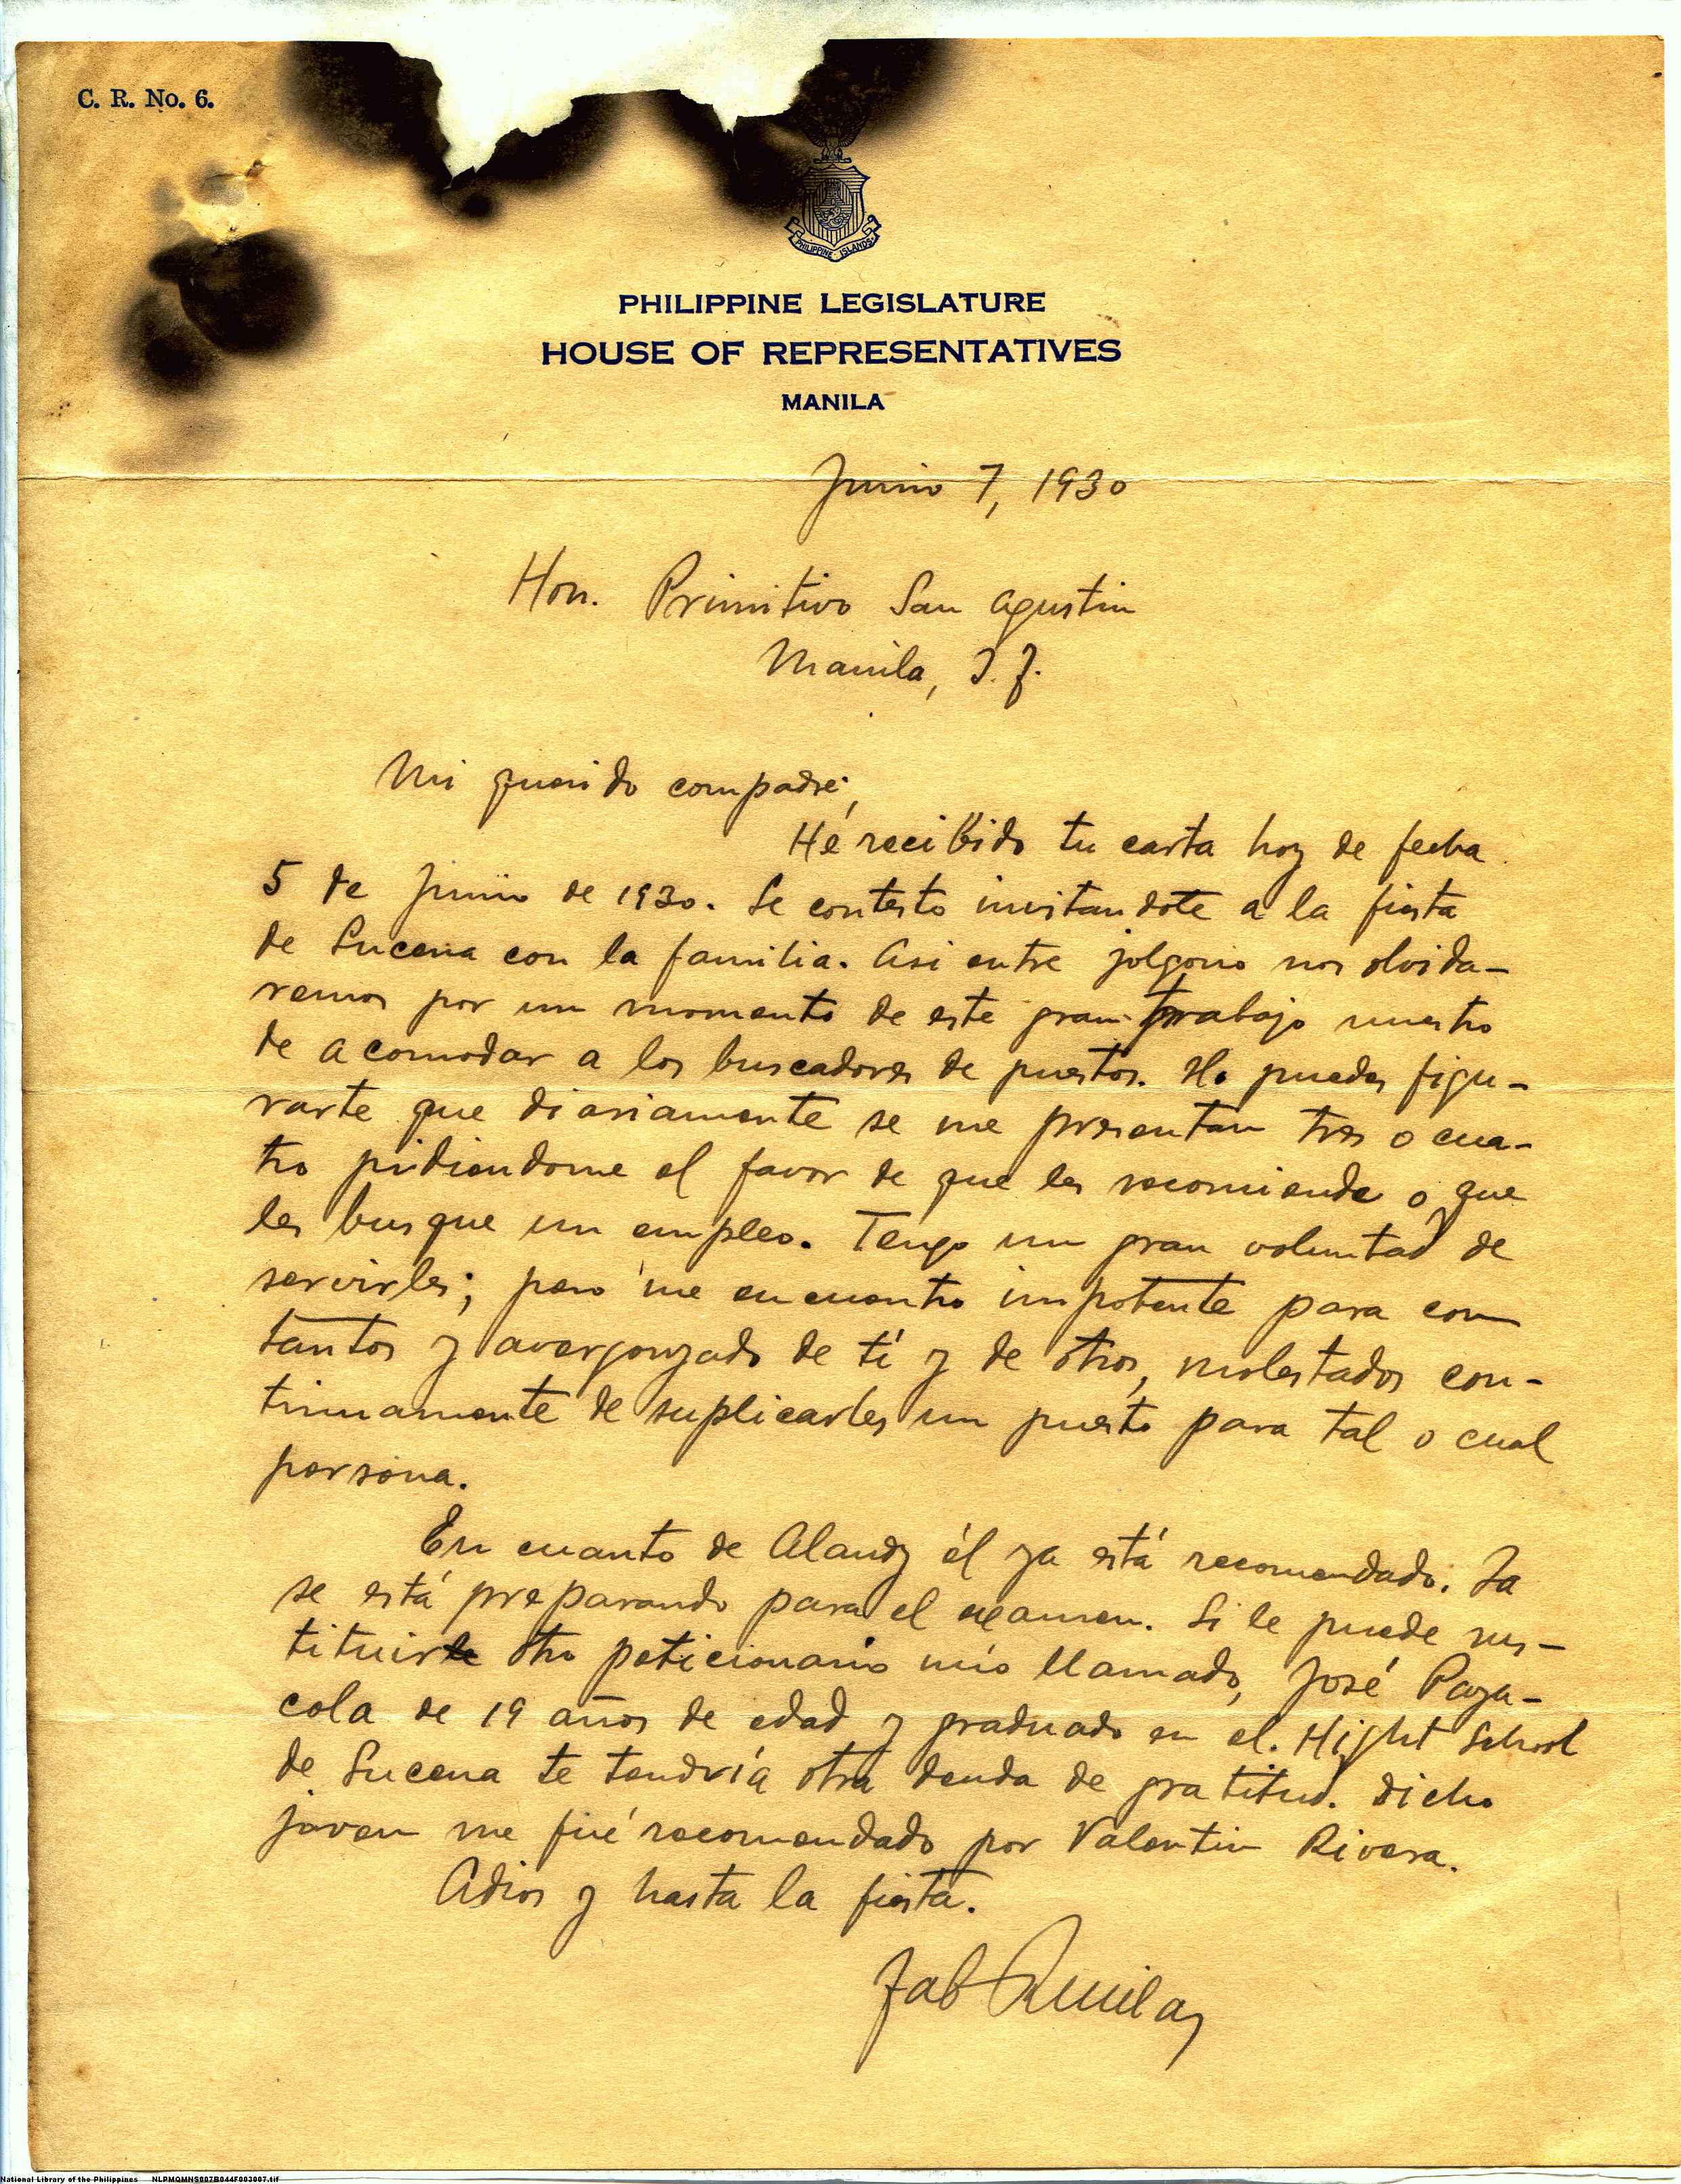 C. R. No. 6.
PHILIPPINE ISLANDS
PHILIPPINE LEGISLATURE
HOUSE OF REPRESENTATIVES
MANILA
Junio 7, 1930
Hon. Primitivo San Agustin
Manila, I. F.
Mi querido compadre,
Hé recibido tu carta hoy de fecha
5 de Junio de 1930. Se contesto invitandote a la fiesta
de Lucena con la familia. Asi entre jolgorio nos olvida-
remos por un momento de este gran trabajo nuestro
de acomodar a los buscadores de puestos. No puedes figu-
rarte que diariamente se me presentan tres o cua-
tro pidiendome el favor de que les recomiende o que
les busque un empleo. Tengo un gran voluntad de
servirles; pero me encuentro impotente para con
tantos y avergonzado de tí y de otros, molestados con-
tinuamente de suplicarles un puesto para tal o cual
persona.
En cuanto de Alandy él ya está recomendado. Ya
se está preparando para el examen. Si le puede sus-
tituirle otro peticionario mio llamado, José Paga-
cola de 19 años de edad y graduado en el. Hight School
de Lucena te tendría otra deuda de gratitud. Dicho
joven me fué recomendado por Valentin Rivera.
Adios y hasta la fiesta.
Fab
National Library of the Philippines NLPMQMNS007B044F003007.tif